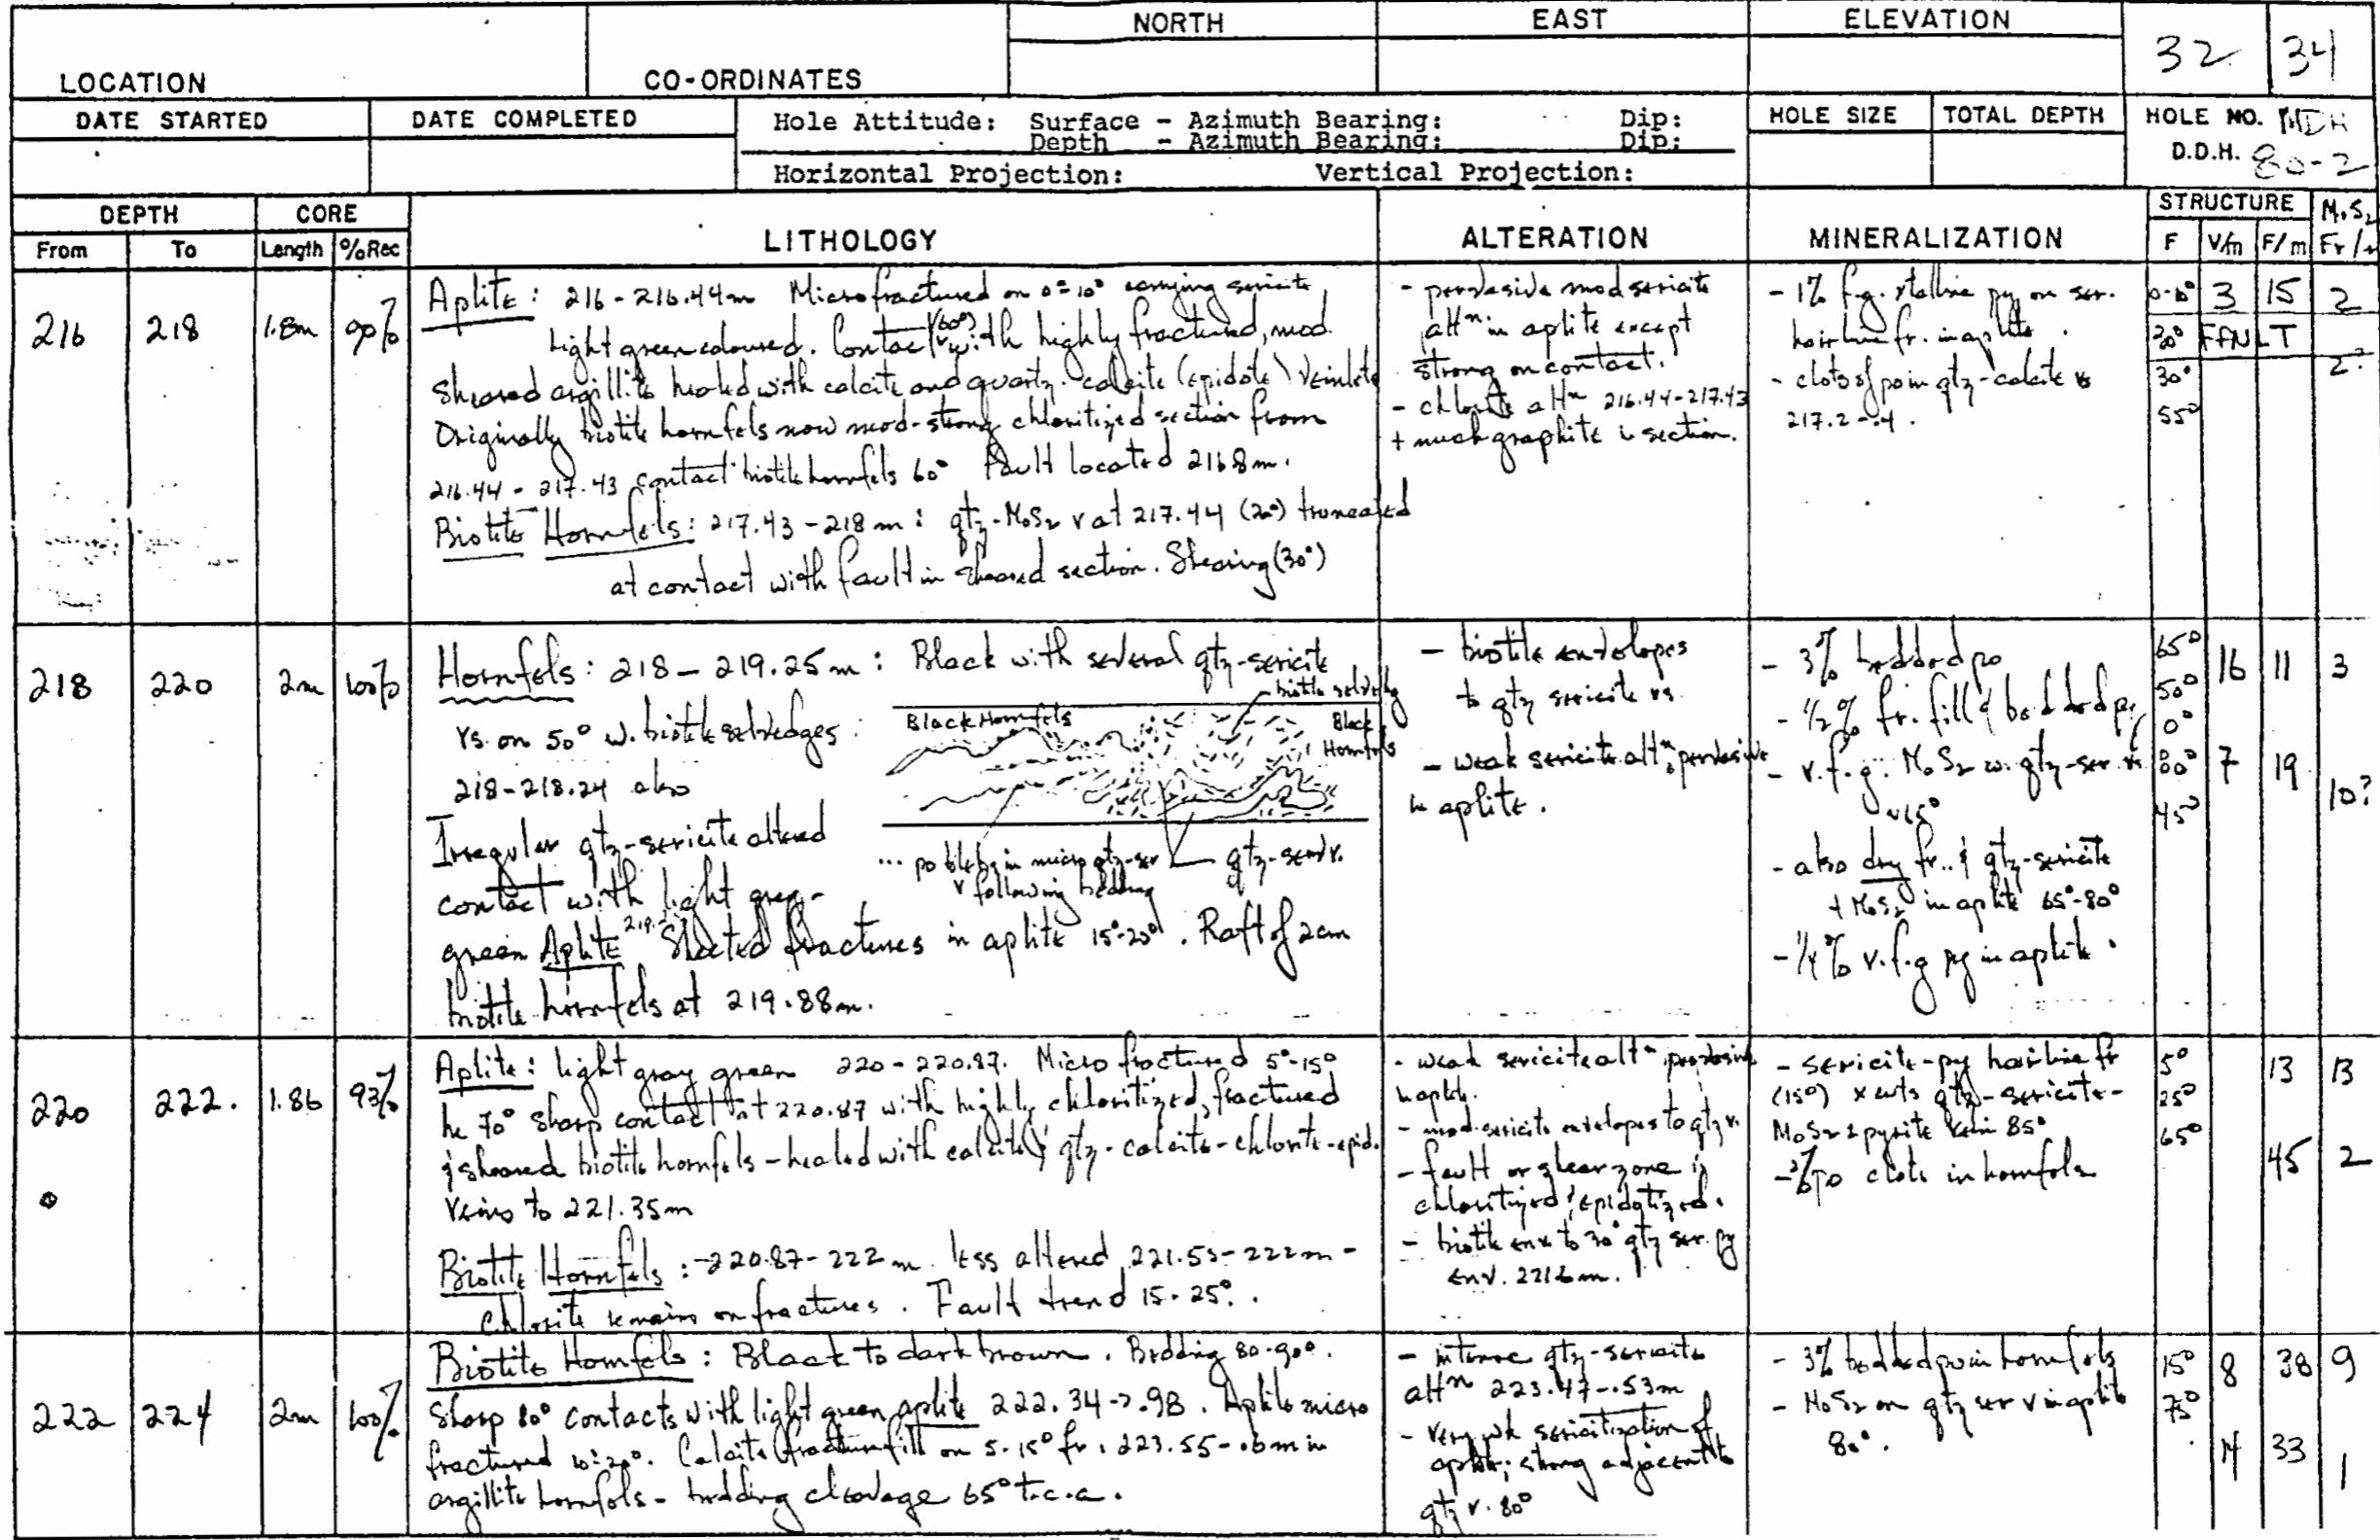 NORTH EAST ELEVATION
32 34
LOCATION CO-ORDINATES
DATE STARTED DATE COMPLETED Hole Attitude: Surface - Azimuth Bearing: Dip: HOLE SIZE TOTAL DEPTH HOLE NO. MDH
Depth - Azimuth Bearing: Dip:
D.D.H. 80-2
Horizontal Projection: Vertical Projection:
DEPTH CORE LITHOLOGY ALTERATION MINERALIZATION STRUCTURE MoS2
From To Length %Rec F V/m F/m Fr/m
216 218 1.8m 90%
Aplite: 216-216.44m Microfractured on 0-10° carrying sericite
light green coloured. Contact (60°) with highly fractured, mod.
sheared argillite healed with calcite and quartz-calcite (epidote) veinlets
Originally biotite hornfels now mod-strong chloritized section from
216.44-217.43 contact biotite hornfels 60° Fault located 216.8m.
Biotite Hornfels: 217.43-218m: qtz-MoS2 v at 217.44 (20°) truncated
at contact with fault in sheared section. Shearing (30°)
- pervasive mod sericite
altn in aplite except
strong on contact.
- chlorite altn 216.44-217.43
+ much graphite in section.
- 1% f.g. xtalline py on ser.
hairline fr. in aplite.
- clots of po in qtz-calcite vs
217.2-.4.
0-10° 3 15 2
20° FAULT
30° 2?
55°
218 220 2m 100%
Hornfels: 218-219.25m: Black with several qtz-sericite
vs. on 50° w. biotite selvedges:
218-218.24 also
Irregular qtz-sericite altered
contact with light grey-
green Aplite 219. Sheeted fractures in aplite 15°-20°. Raft of 2cm
biotite hornfels at 219.88m.
biotite selvedg
Black Hornfels
Black
Hornfels
... po blebs in micro qtz-ser
v following bedding
qtz-ser v.
- biotite envelopes
to qtz sericite vs.
- weak sericite altn pervasive
in aplite.
- 3% bedded po
- 1/2% fr. fill & bedded py
- v.f.g. MoS2 w. qtz-ser vs
- also dry fr. & qtz-sericite
+ MoS2 in aplite 65°-80°
- 1/4% v.f.g py in aplite.
65° 16 11 3
50°
0°
80° 7 19 10?
45°
220 222. 1.86 93%
Aplite: light gray green 220-220.87. Micro fractured 5°-15°
70° sharp contact at 220.87 with highly chloritized, fractured
& sheared biotite hornfels - healed with calcite & qtz-calcite-chlorite-epid.
veins to 221.35m
Biotite Hornfels: -220.87-222m less altered 221.55-222m-
chlorite remains on fractures. Fault trend 15-25°.
- weak sericite altn pervasive
in aplite.
- mod sericite envelopes to qtz v.
- fault or shear zone is
chloritized, epidotized.
- biotite env to 30° qtz ser. py
env. 221.6m.
- sericite-py hairline fr
(15°) x cuts qtz-sericite-
MoS2 ± pyrite vein 85°
po clots in hornfels
5° 13 13
25°
65°
45 2
222 224 2m 100%
Biotite Hornfels: Black to dark brown. Bedding 80-90°.
Sharp 80° contacts with light green aplite 222.34-2.98. Aplite micro
fractured 10-20°. Calcite fracture fill on 5-15° fr. 223.55-.6m in
argillite hornfels - bedding cleavage 65° t.c.a.
- intense qtz-sericite
altn 223.47-.53m
- very wk sericitization of
aplite; strong adjacent to
qtz v. 80°
- 3% bedded po in hornfels
- MoS2 on qtz ser v in aplite
80°.
15° 8 38 9
75°
14 33 1